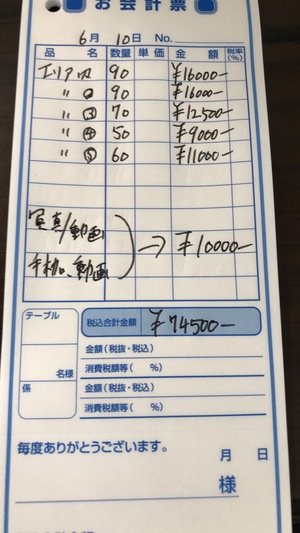 お会計票
6月 10日 No.
品名 数量 単価 金額 税率(%)
エリア内 90 ¥16000-
〃 ② 90 ¥16000-
〃 ③ 70 ¥12500-
〃 ④ 50 ¥9000-
〃 ⑤ 60 ¥11000-
写真/動画
→ ¥10000-
動画
テーブル
税込合計金額 ¥74500-
金額(税抜・税込)
名様
消費税額等( %)
係
金額(税抜・税込)
消費税額等( %)
毎度ありがとうございます。
月 日
様